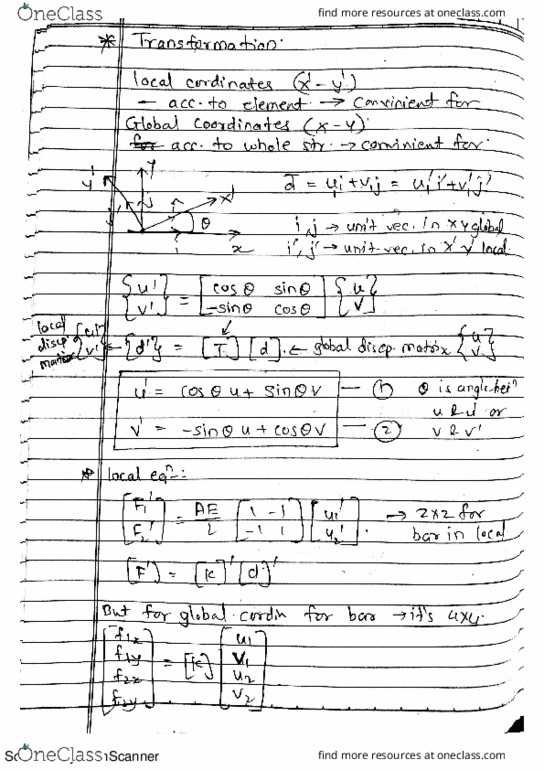 OneClass
find more resources at oneclass.com
* Transformation:
local cordinates (x'-y')
- acc. to element → convinient for
Global Coordinates (x-y)
acc. to whole str. → convinient for
y' y x'
j' j i' θ
i x
d = ui + vj = u'i' + v'j'
i, j → unit vec. in xy global
i', j' → unit vec. in x'y' local
{u' v'} = [cosθ sinθ -sinθ cosθ] {u v}
local discp. matrix {u' v'} ← {d'} = [T] [d] ← global discp. matrix {u v}
u' = cosθ u + sinθ v — ①
θ is angle betⁿ u & u' or v & v'
v' = -sinθ u + cosθ v — ②
* local eqⁿ:
[F1' F2'] = AE/L [1 -1 -1 1] [u1' u2'] → 2x2 for bar in local
[F'] = [k]' [d]'
But for global cordin for bar → it's 4x4.
[f1x f1y f2x f2y] = [k] [u1 v1 u2 v2]
OneClass
Scanner
find more resources at oneclass.com